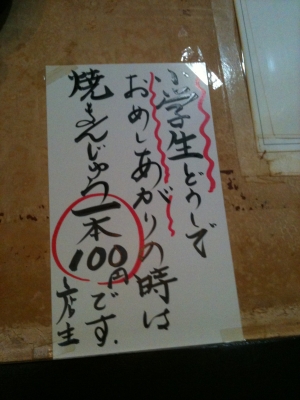 小学生どうしで
おめしあがりの時は
焼まんじゅう一本
100円です.
店主